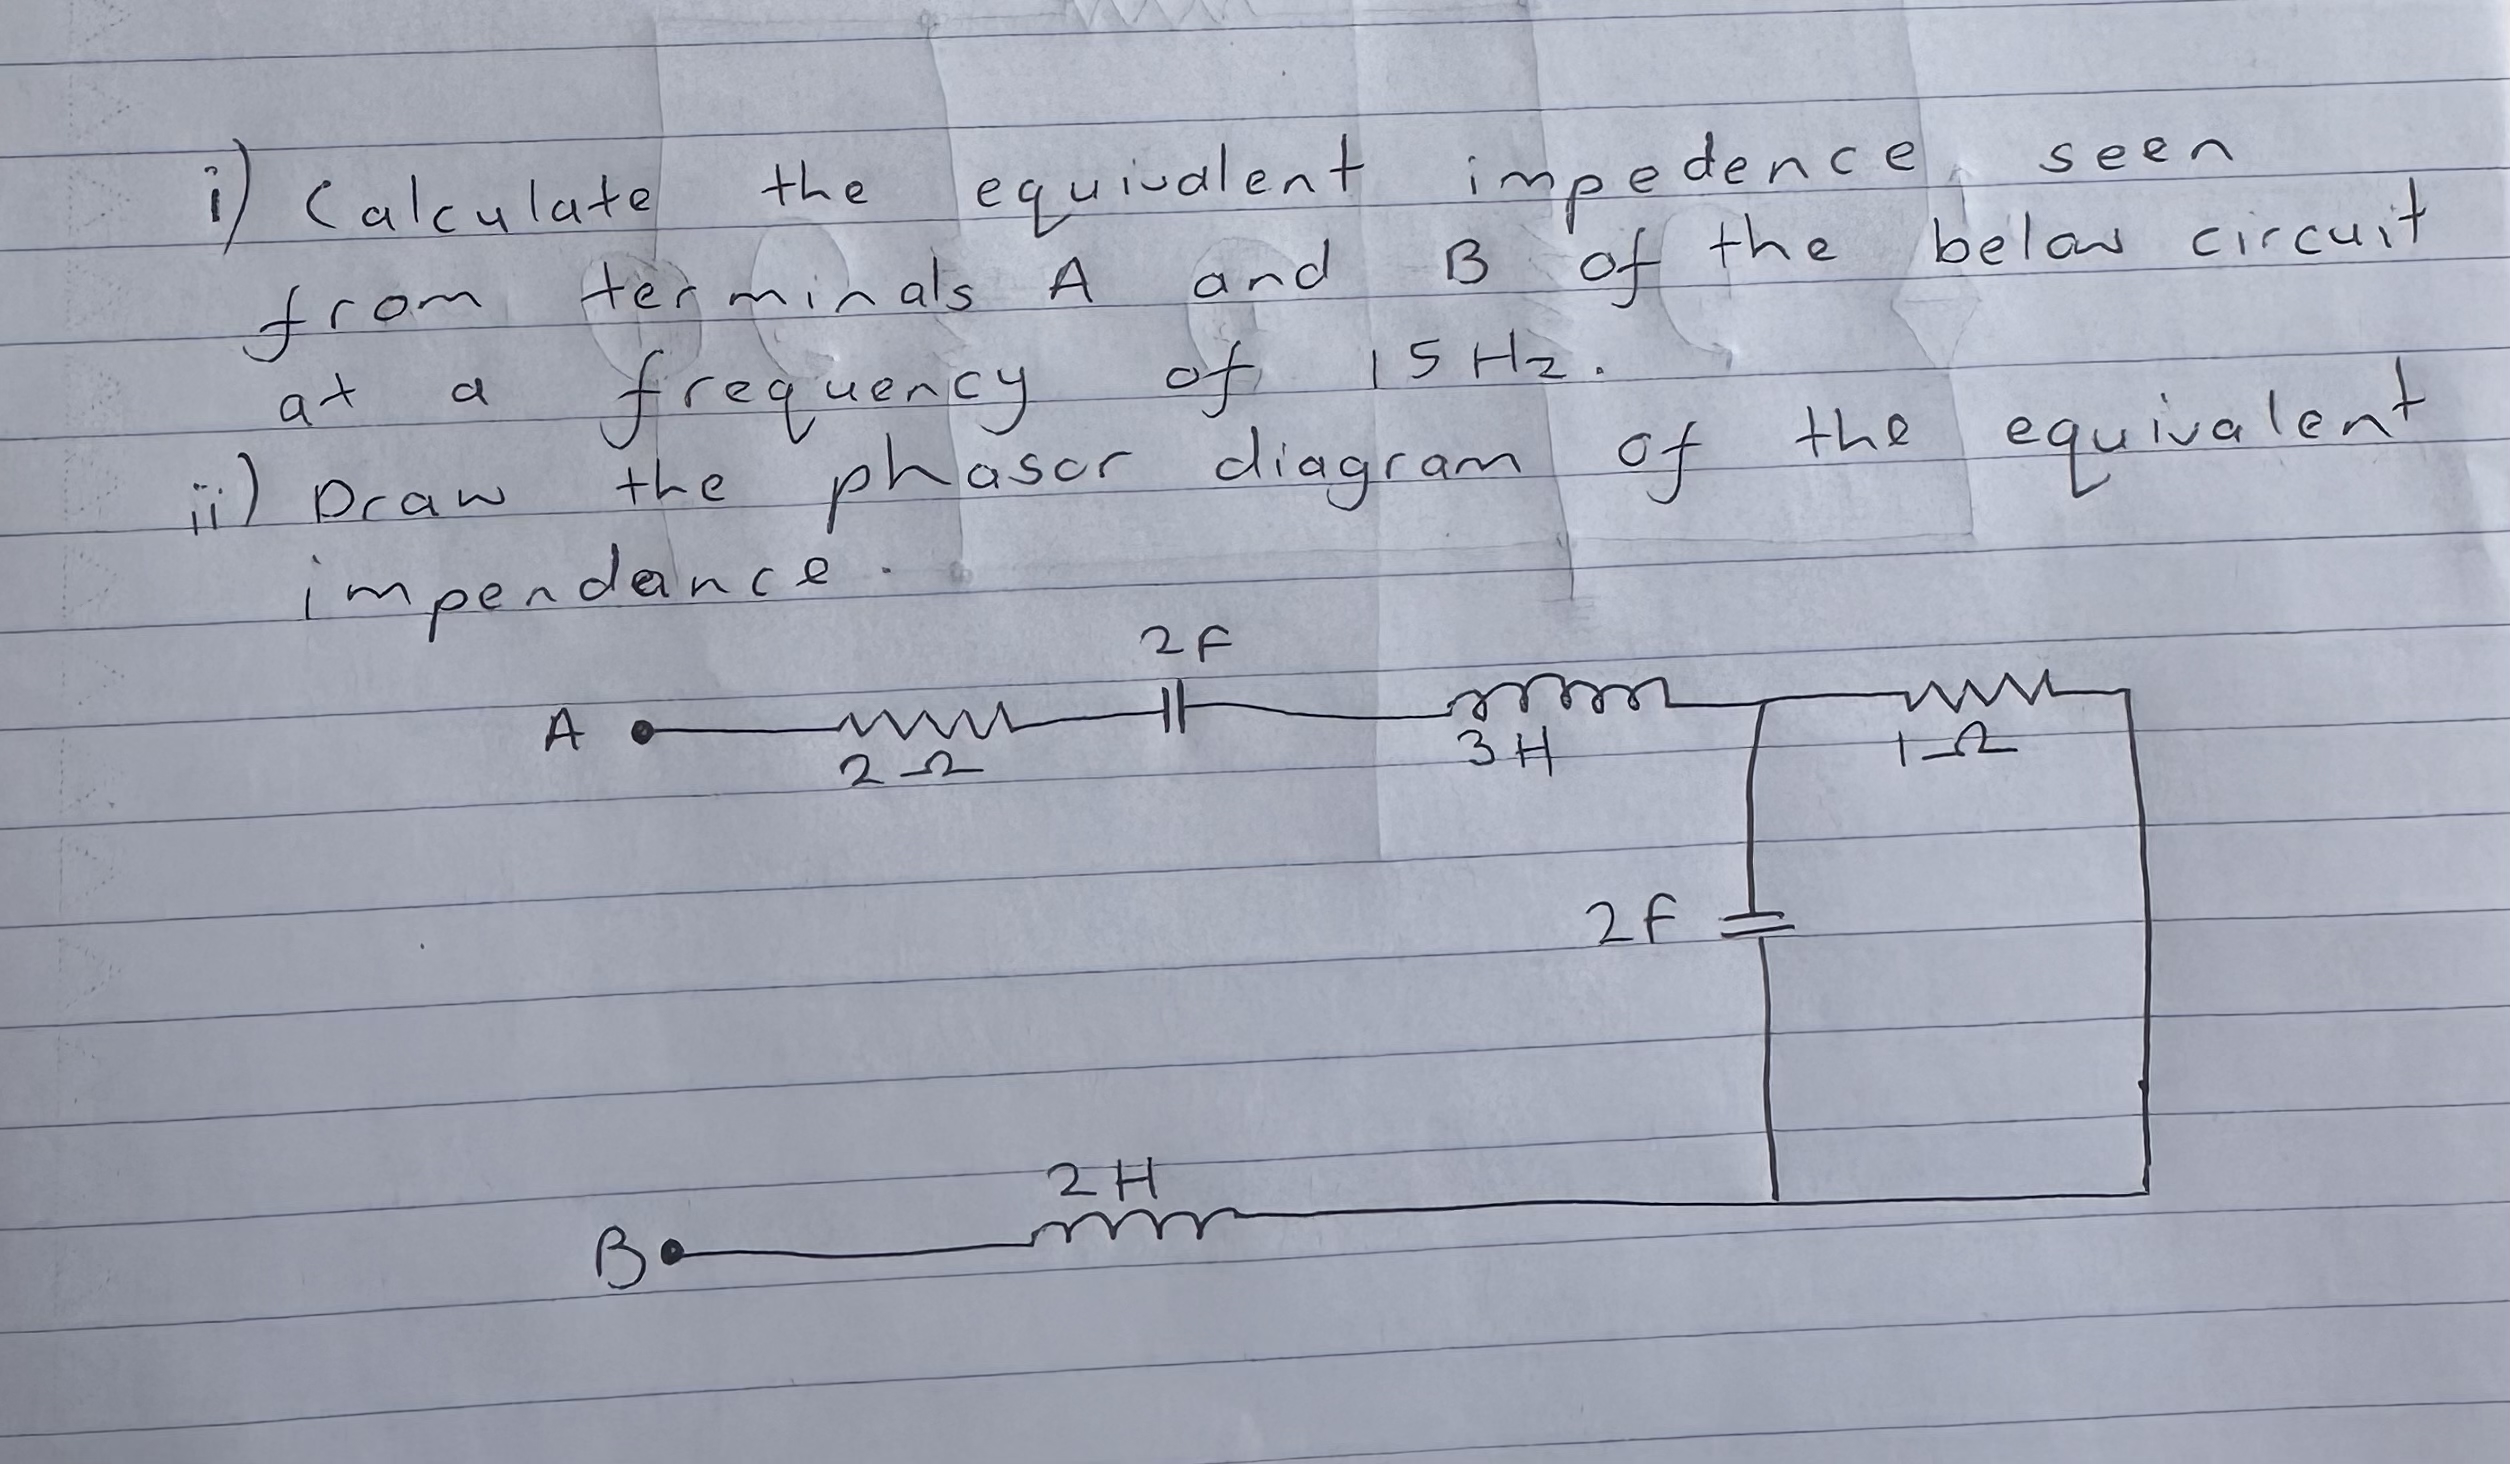 i) Calculate the equivalent impedence seen
from terminals A and B of the below circuit
at a frequency of 15 Hz.
ii) Draw the phasor diagram of the equivalent
impendance.
2F
A
2Ω
3H
1Ω
2F
2H
B